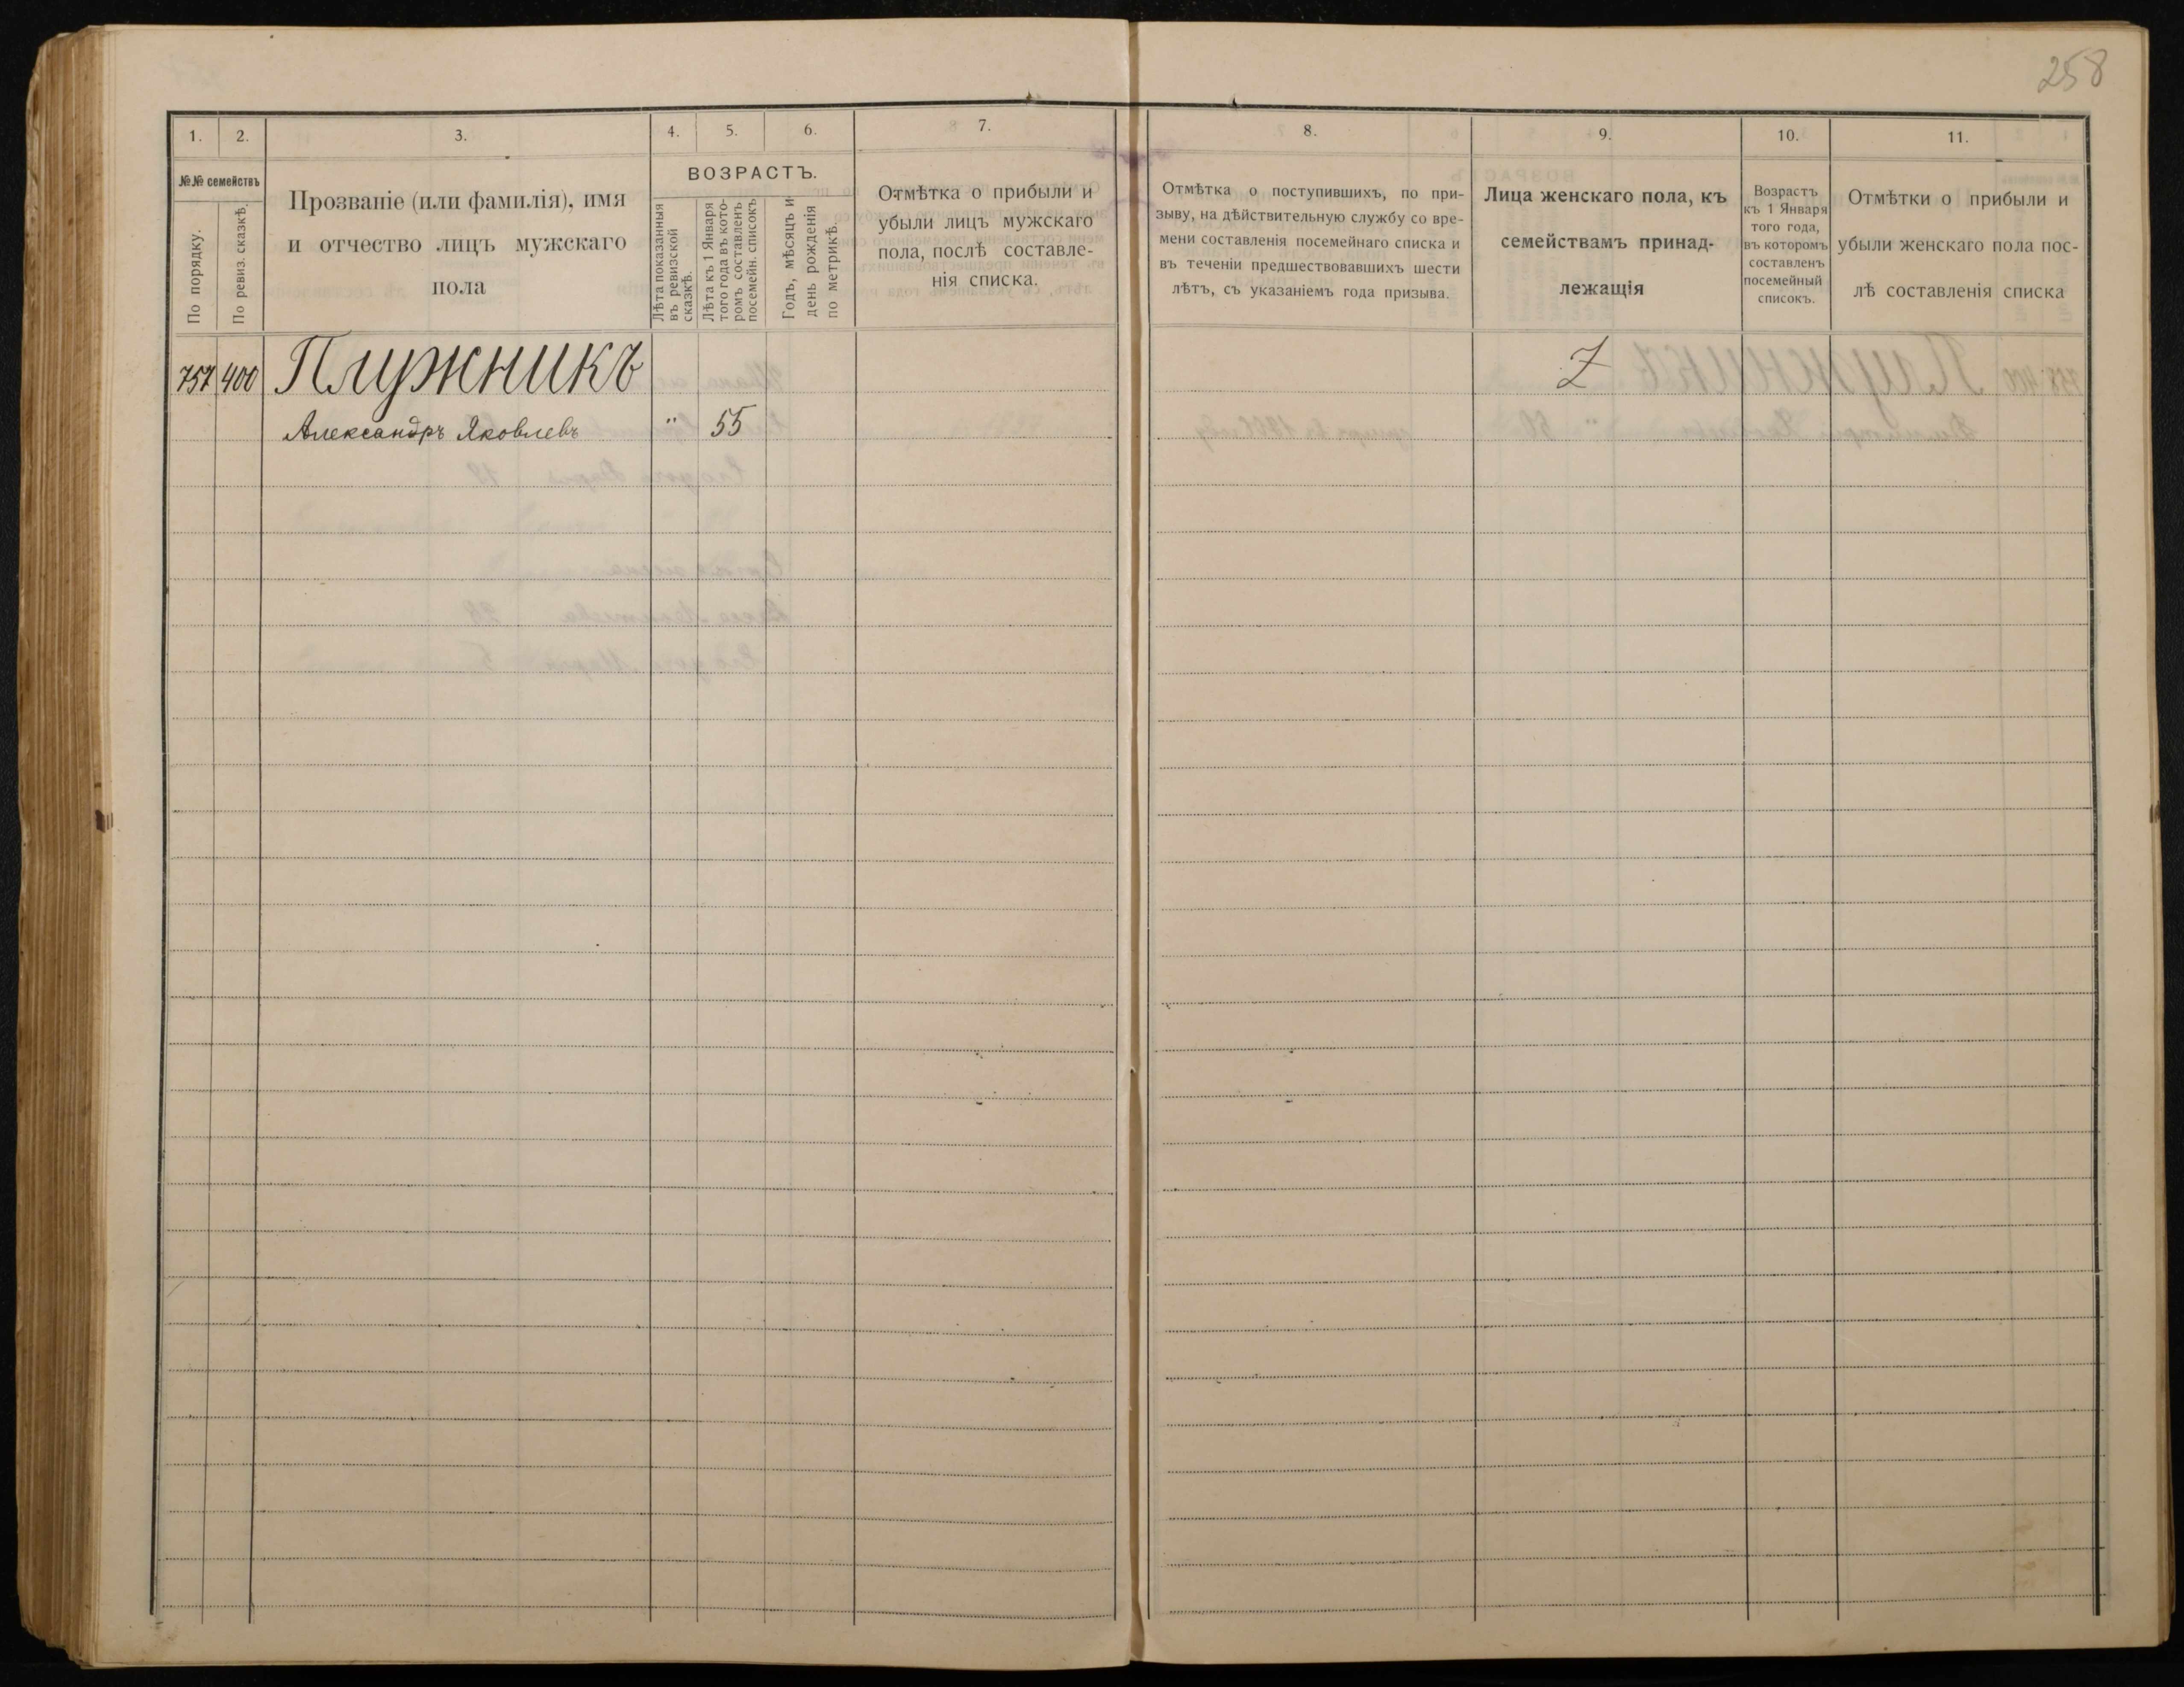 258
1.
2.
3.
4.
5.
6.
7.
8.
9.
10.
11.
№№ семействъ
По порядку.
По ревиз. сказкѣ.
Прозваніе (или фамилія), имя
и отчество лицъ мужскаго
пола
ВОЗРАСТЪ.
Лѣта показанныя
въ ревизской
сказкѣ.
Лѣта къ 1 Января
того года въ кото-
ромъ составленъ
посемейн. списокъ
Годъ, мѣсяцъ и
день рожденія
по метрикѣ.
Отмѣтка о прибыли и
убыли лицъ мужскаго
пола, послѣ составле-
нія списка.
Отмѣтка о поступившихъ, по при-
зыву, на дѣйствительную службу со вре-
мени составленія посемейнаго списка и
въ теченіи предшествовавшихъ шести
лѣтъ, съ указаніемъ года призыва.
Лица женскаго пола, къ
семействамъ принад-
лежащія
Возрастъ
къ 1 Января
того года,
въ которомъ
составленъ
посемейный
списокъ.
Отмѣтки о прибыли и
убыли женскаго пола пос-
лѣ составленія списка
757 400 Плужникъ
Александръ Яковлевъ " 55